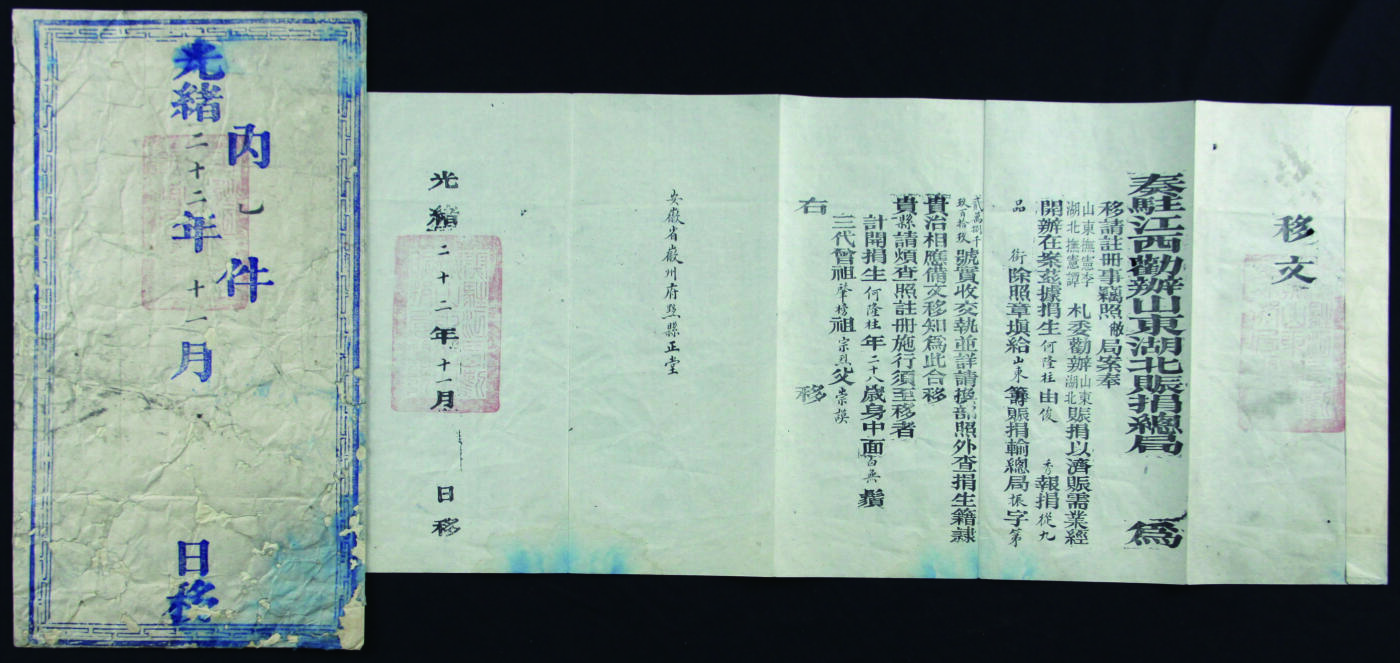 移文
奏駐江西勸辦山東湖北賑捐總局 為
移請註冊事竊照敝局案奉
山東撫憲李
湖北撫憲譚
札委勸辦山東湖北賑捐以濟賑需業經
開辦在案茲據捐生何隆柱由俊秀報捐從九
品銜除照章填給山東籌賑捐輸總局振字第
貳萬捌千
玖百拾玖
號實收交執並詳請換部照外查捐生籍隸
貴治相應備文移知為此合移
貴縣請煩查照註冊施行須至移者
計開捐生何隆柱年二十八歲身中面白無鬚
三代曾祖肇榜祖宗烈父崇謨
右 移
安徽省徽州府黟縣正堂
光緒二十二年十一月 日移
內 件
光緒二十二年十一月 日移